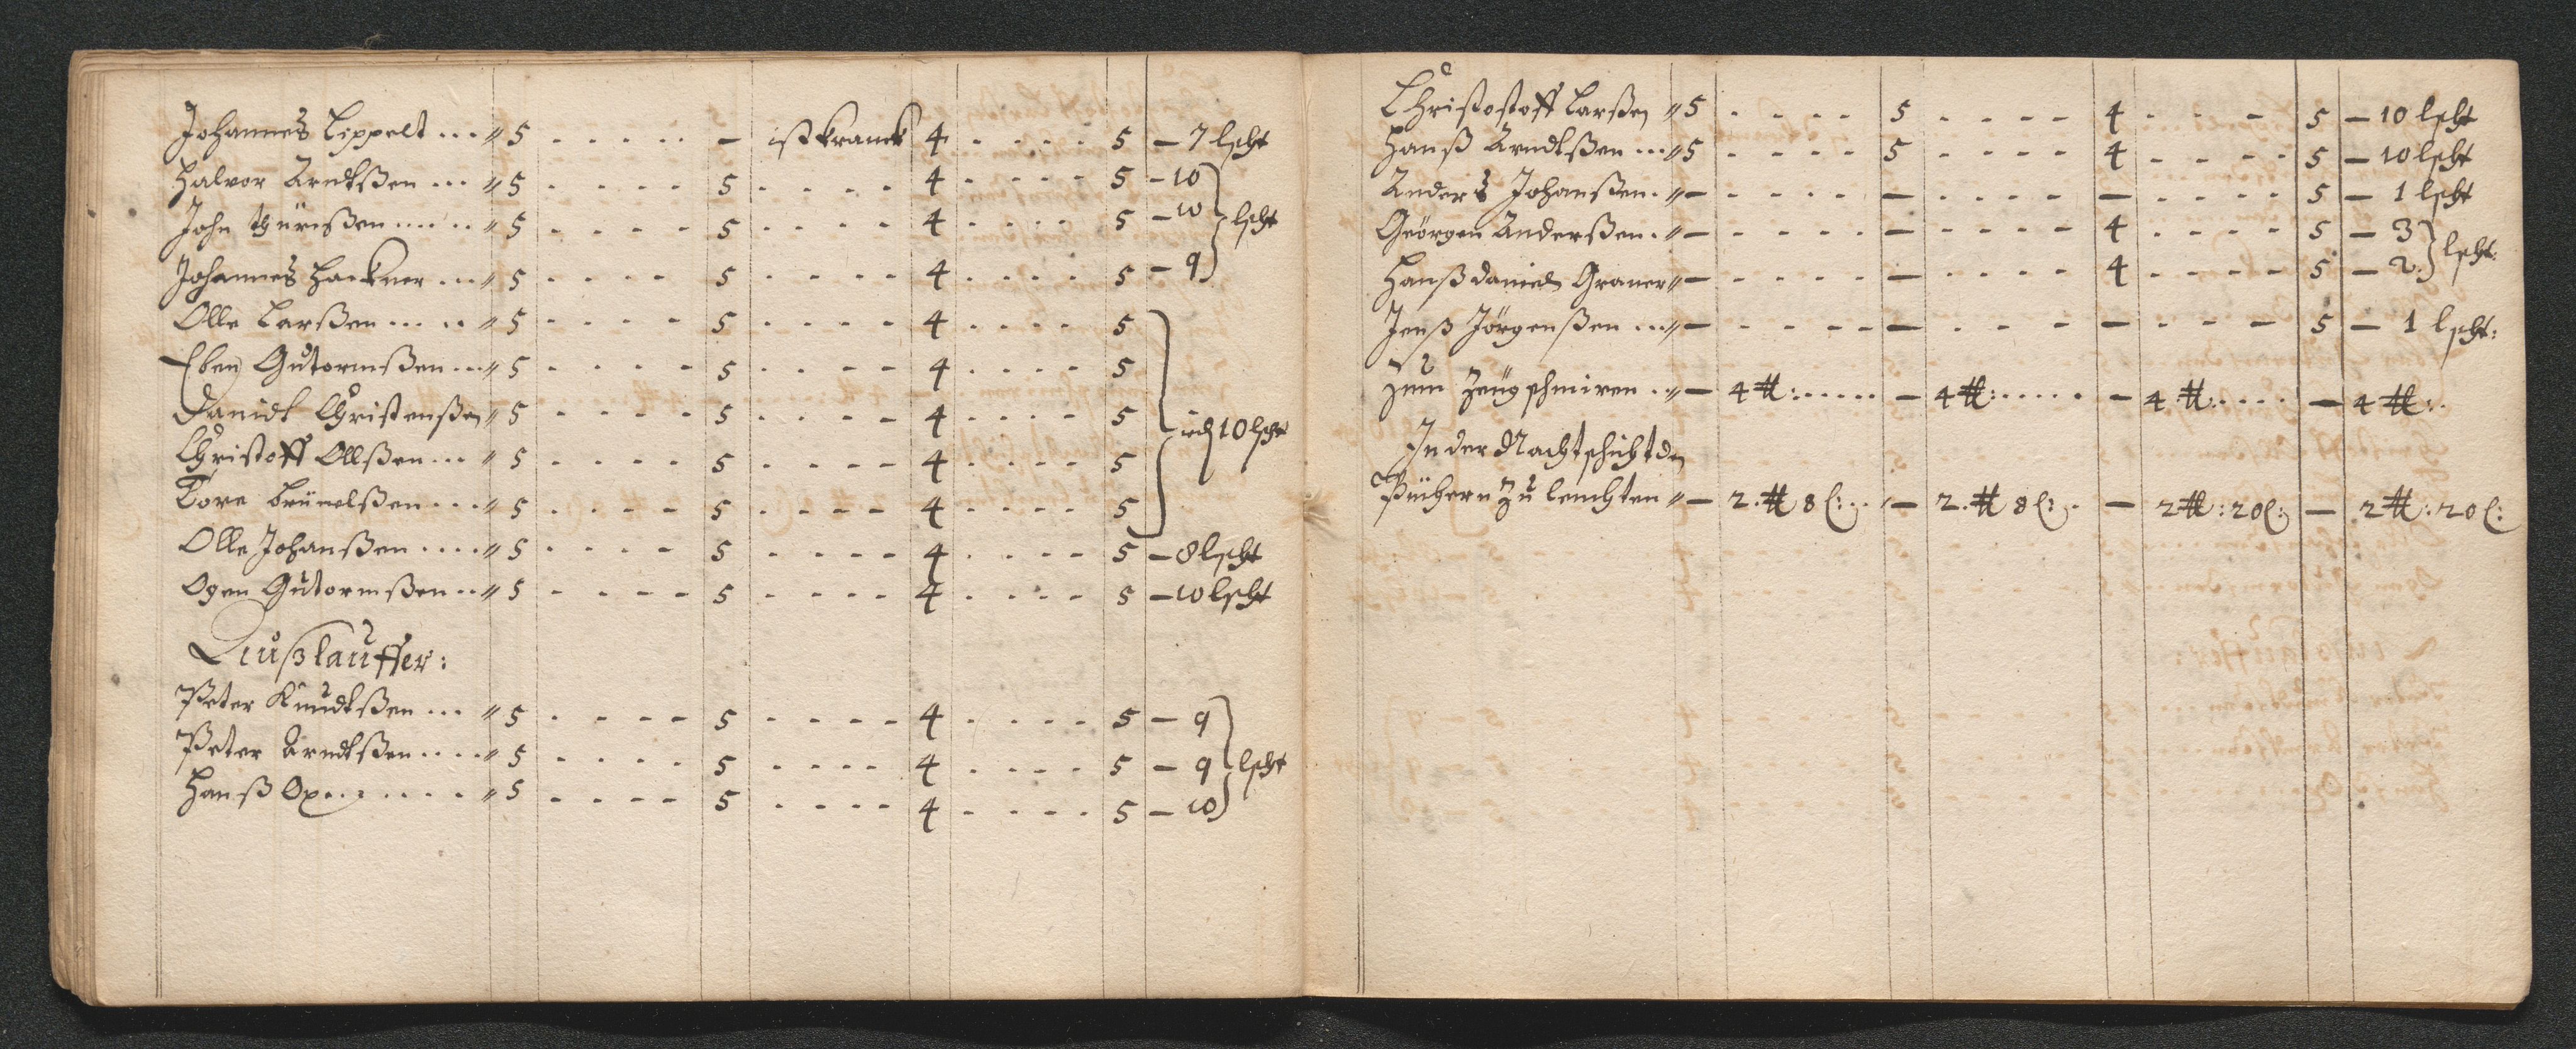 Johannes Lippelt ... " 5 - - - - - - ist kranck 4 - - - - 5 - 7 lscht
Halvor Arndtßen ... " 5 - - - - 5 - - - - 4 - - - - 5 - 10
John ... " 5 - - - - 5 - - - - 4 - - - - 5 - 10 lscht
Johannes Hackner ... " 5 - - - - 5 - - - - 4 - - - - 5 - 9
Olle Larßen ... " 5 - - - - 5 - - - - 4 - - - - 5
Eben Gutormßen ... " 5 - - - - 5 - - - - 4 - - - - 5
Danidt Christenßen " 5 - - - - 5 - - - - 4 - - - - 5 ied 10 lscht
Christoff Ollßen ... " 5 - - - - 5 - - - - 4 - - - - 5
Tore ... " 5 - - - - 5 - - - - 4 - - - - 5
Olle Johanßen .... " 5 - - - - 5 - - - - 4 - - - - 5 - 8 lscht
Ogen Gutormßen .. " 5 - - - - 5 - - - - 4 - - - - 5 - 10 lscht
Außlauffer:
Peter Knudtßen ... " 5 - - - - 5 - - - - 4 - - - - 5 - 9
Peter Arndtßen .... " 5 - - - - 5 - - - - 4 - - - - 5 - 9 lscht
Hanß Ox..... " 5 - - - - 5 - - - - 4 - - - - 5 - 10
Christostoff Larßen " 5 - - - - 5 - - - - 4 - - - 5 - 10 lscht
Hanß Arndtßen ... " 5 - - - - 5 - - - - 4 - - - - 5 - 10 lscht
Anders Johanßen . " - - - - - - - - - - - - - - - 5 - 1 lscht
Geörgen Anderßen . " - - - - - - - - - - 4 - - - - 5 - 3 lscht:
Hanß Daniel Graner " - - - - - - - - - - 4 - - - - 5 - 2.
Jenß Jörgenßen ... " - - - - - - - - - - - - - - 5 - 1 lscht:
Zum Zeug schmiren .. " - 4 ℔: ..... - 4 ℔: ..... - 4 ℔: .... - 4 ℔: .
In der Nachtschicht den
Püchern Zu leuchten " - 2. ℔ 8 l: .. - 2. ℔ 8 l: . - 2 ℔: 20 l: - 2 ℔: 20 l: